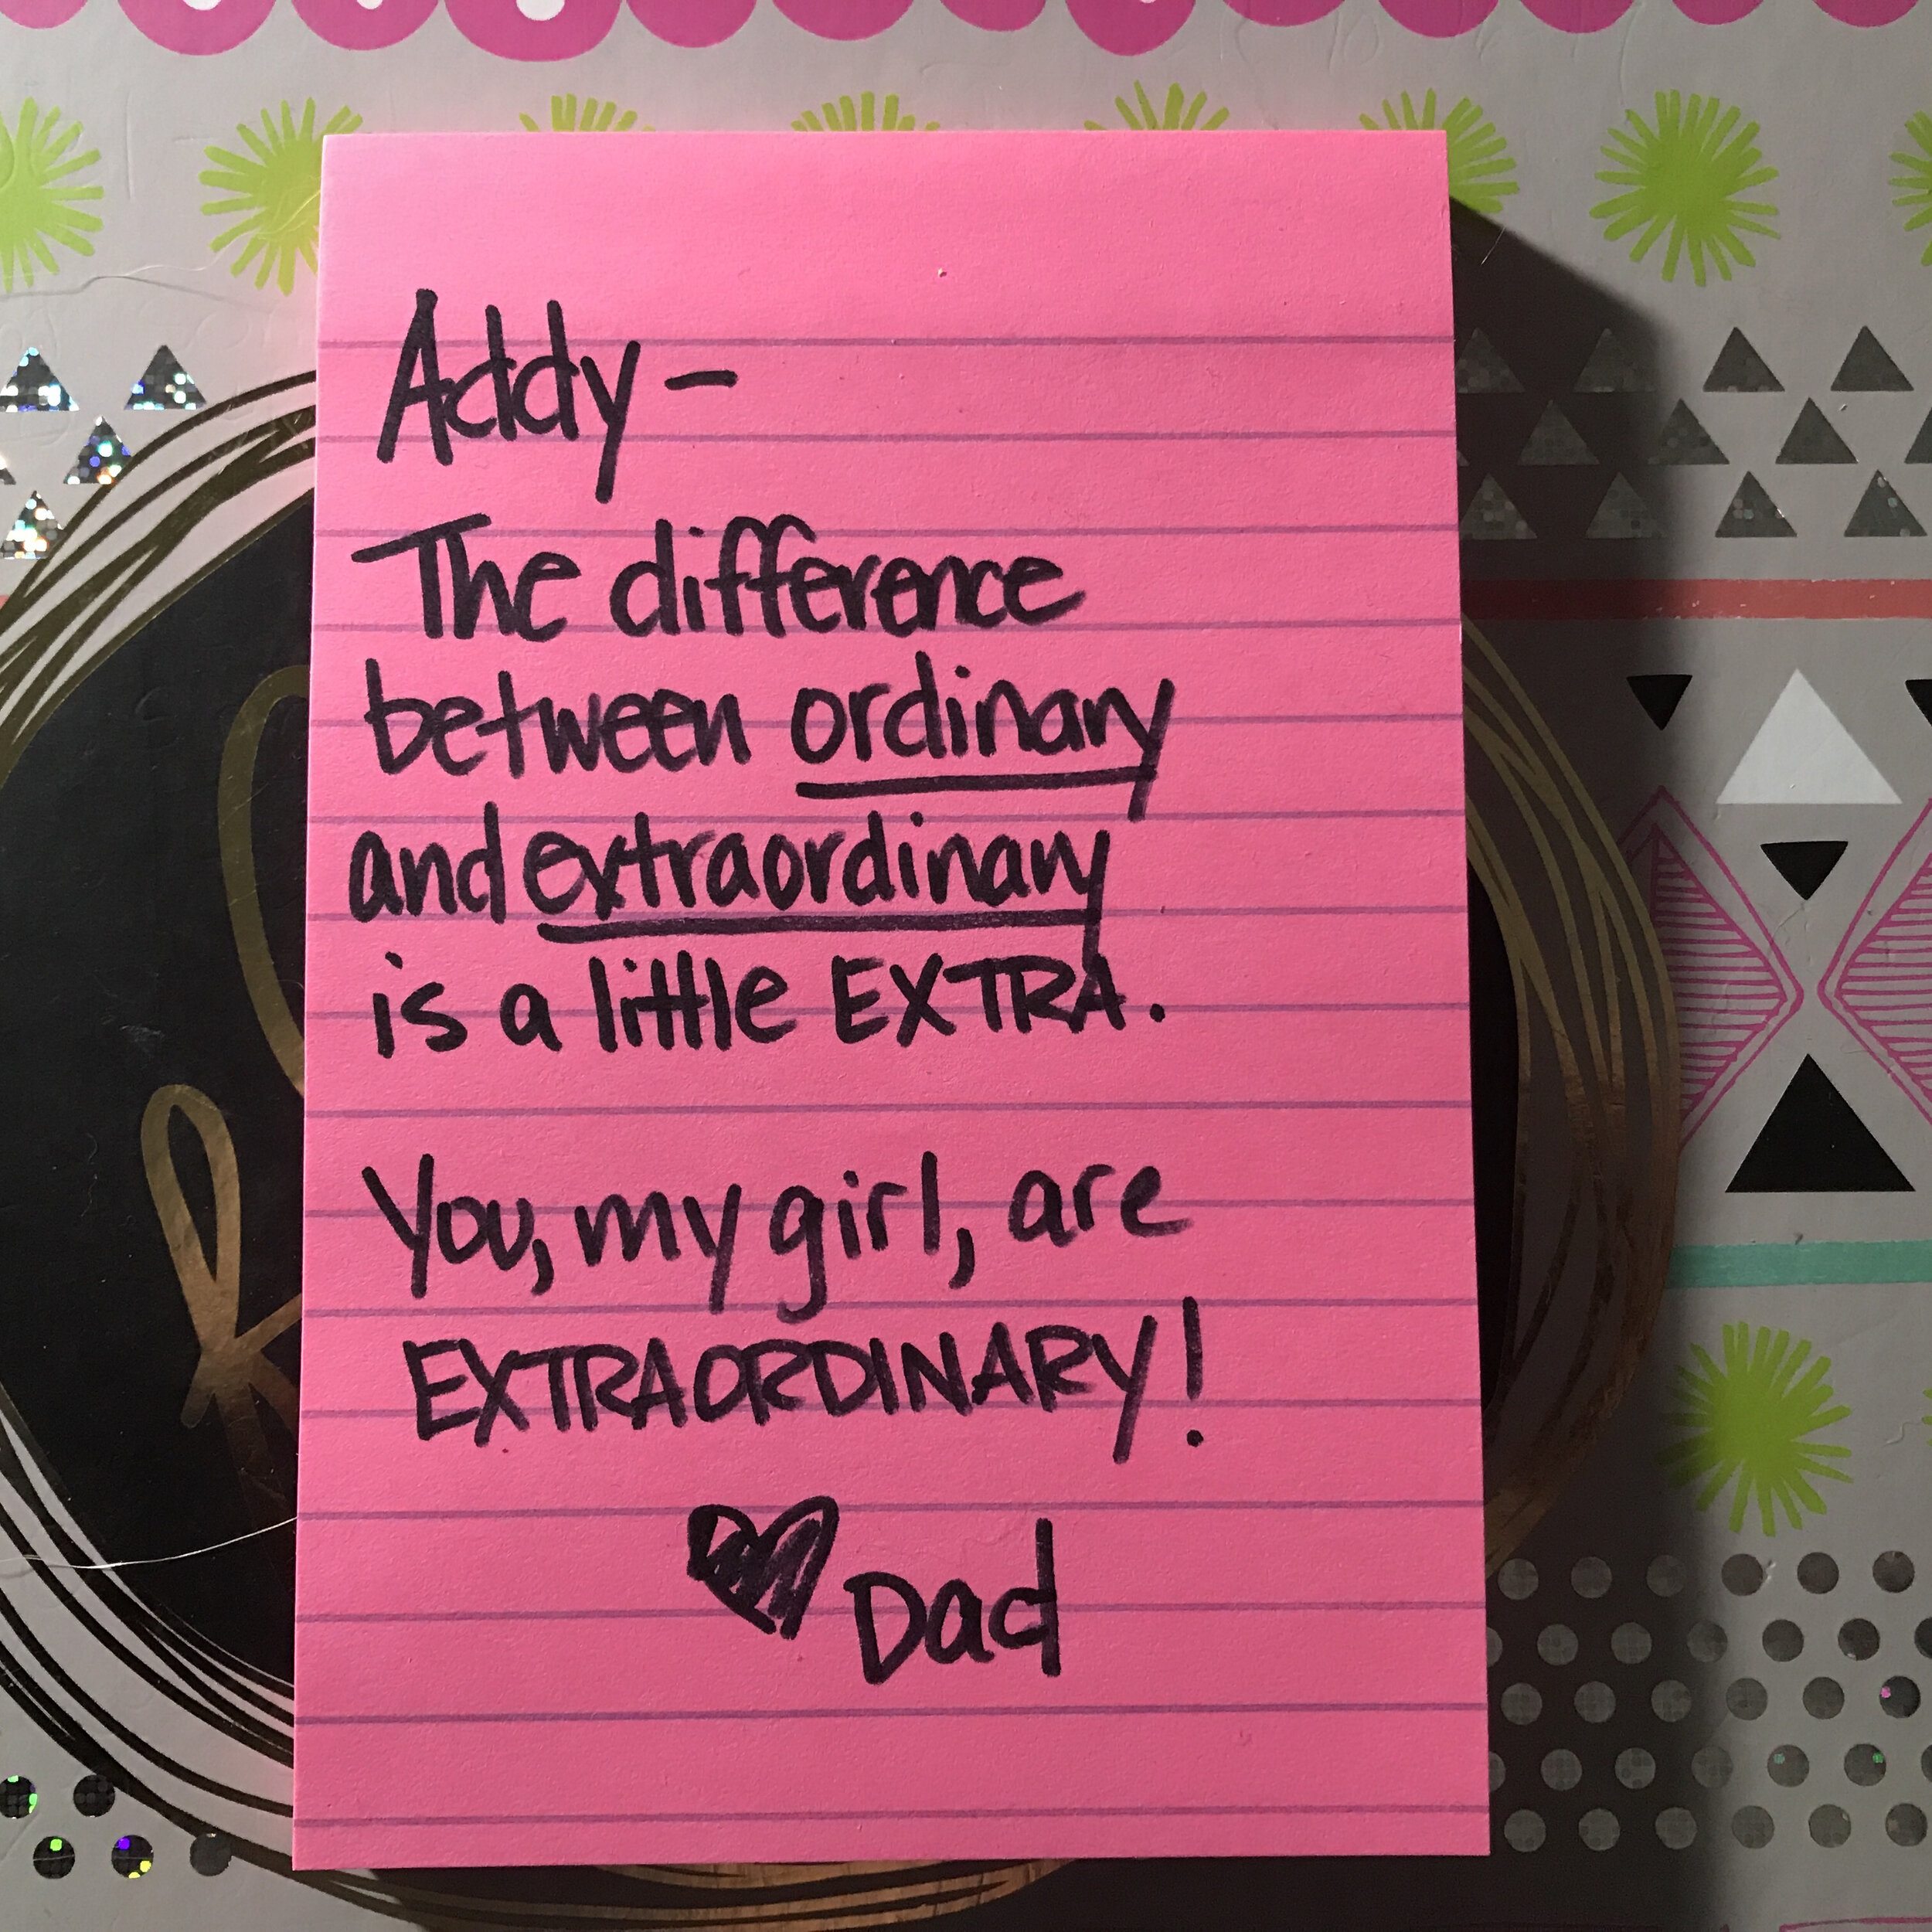 Addy –
The difference
between ordinary
and extraordinary
is a little EXTRA.
You, my girl, are
EXTRAORDINARY!
♥ Dad